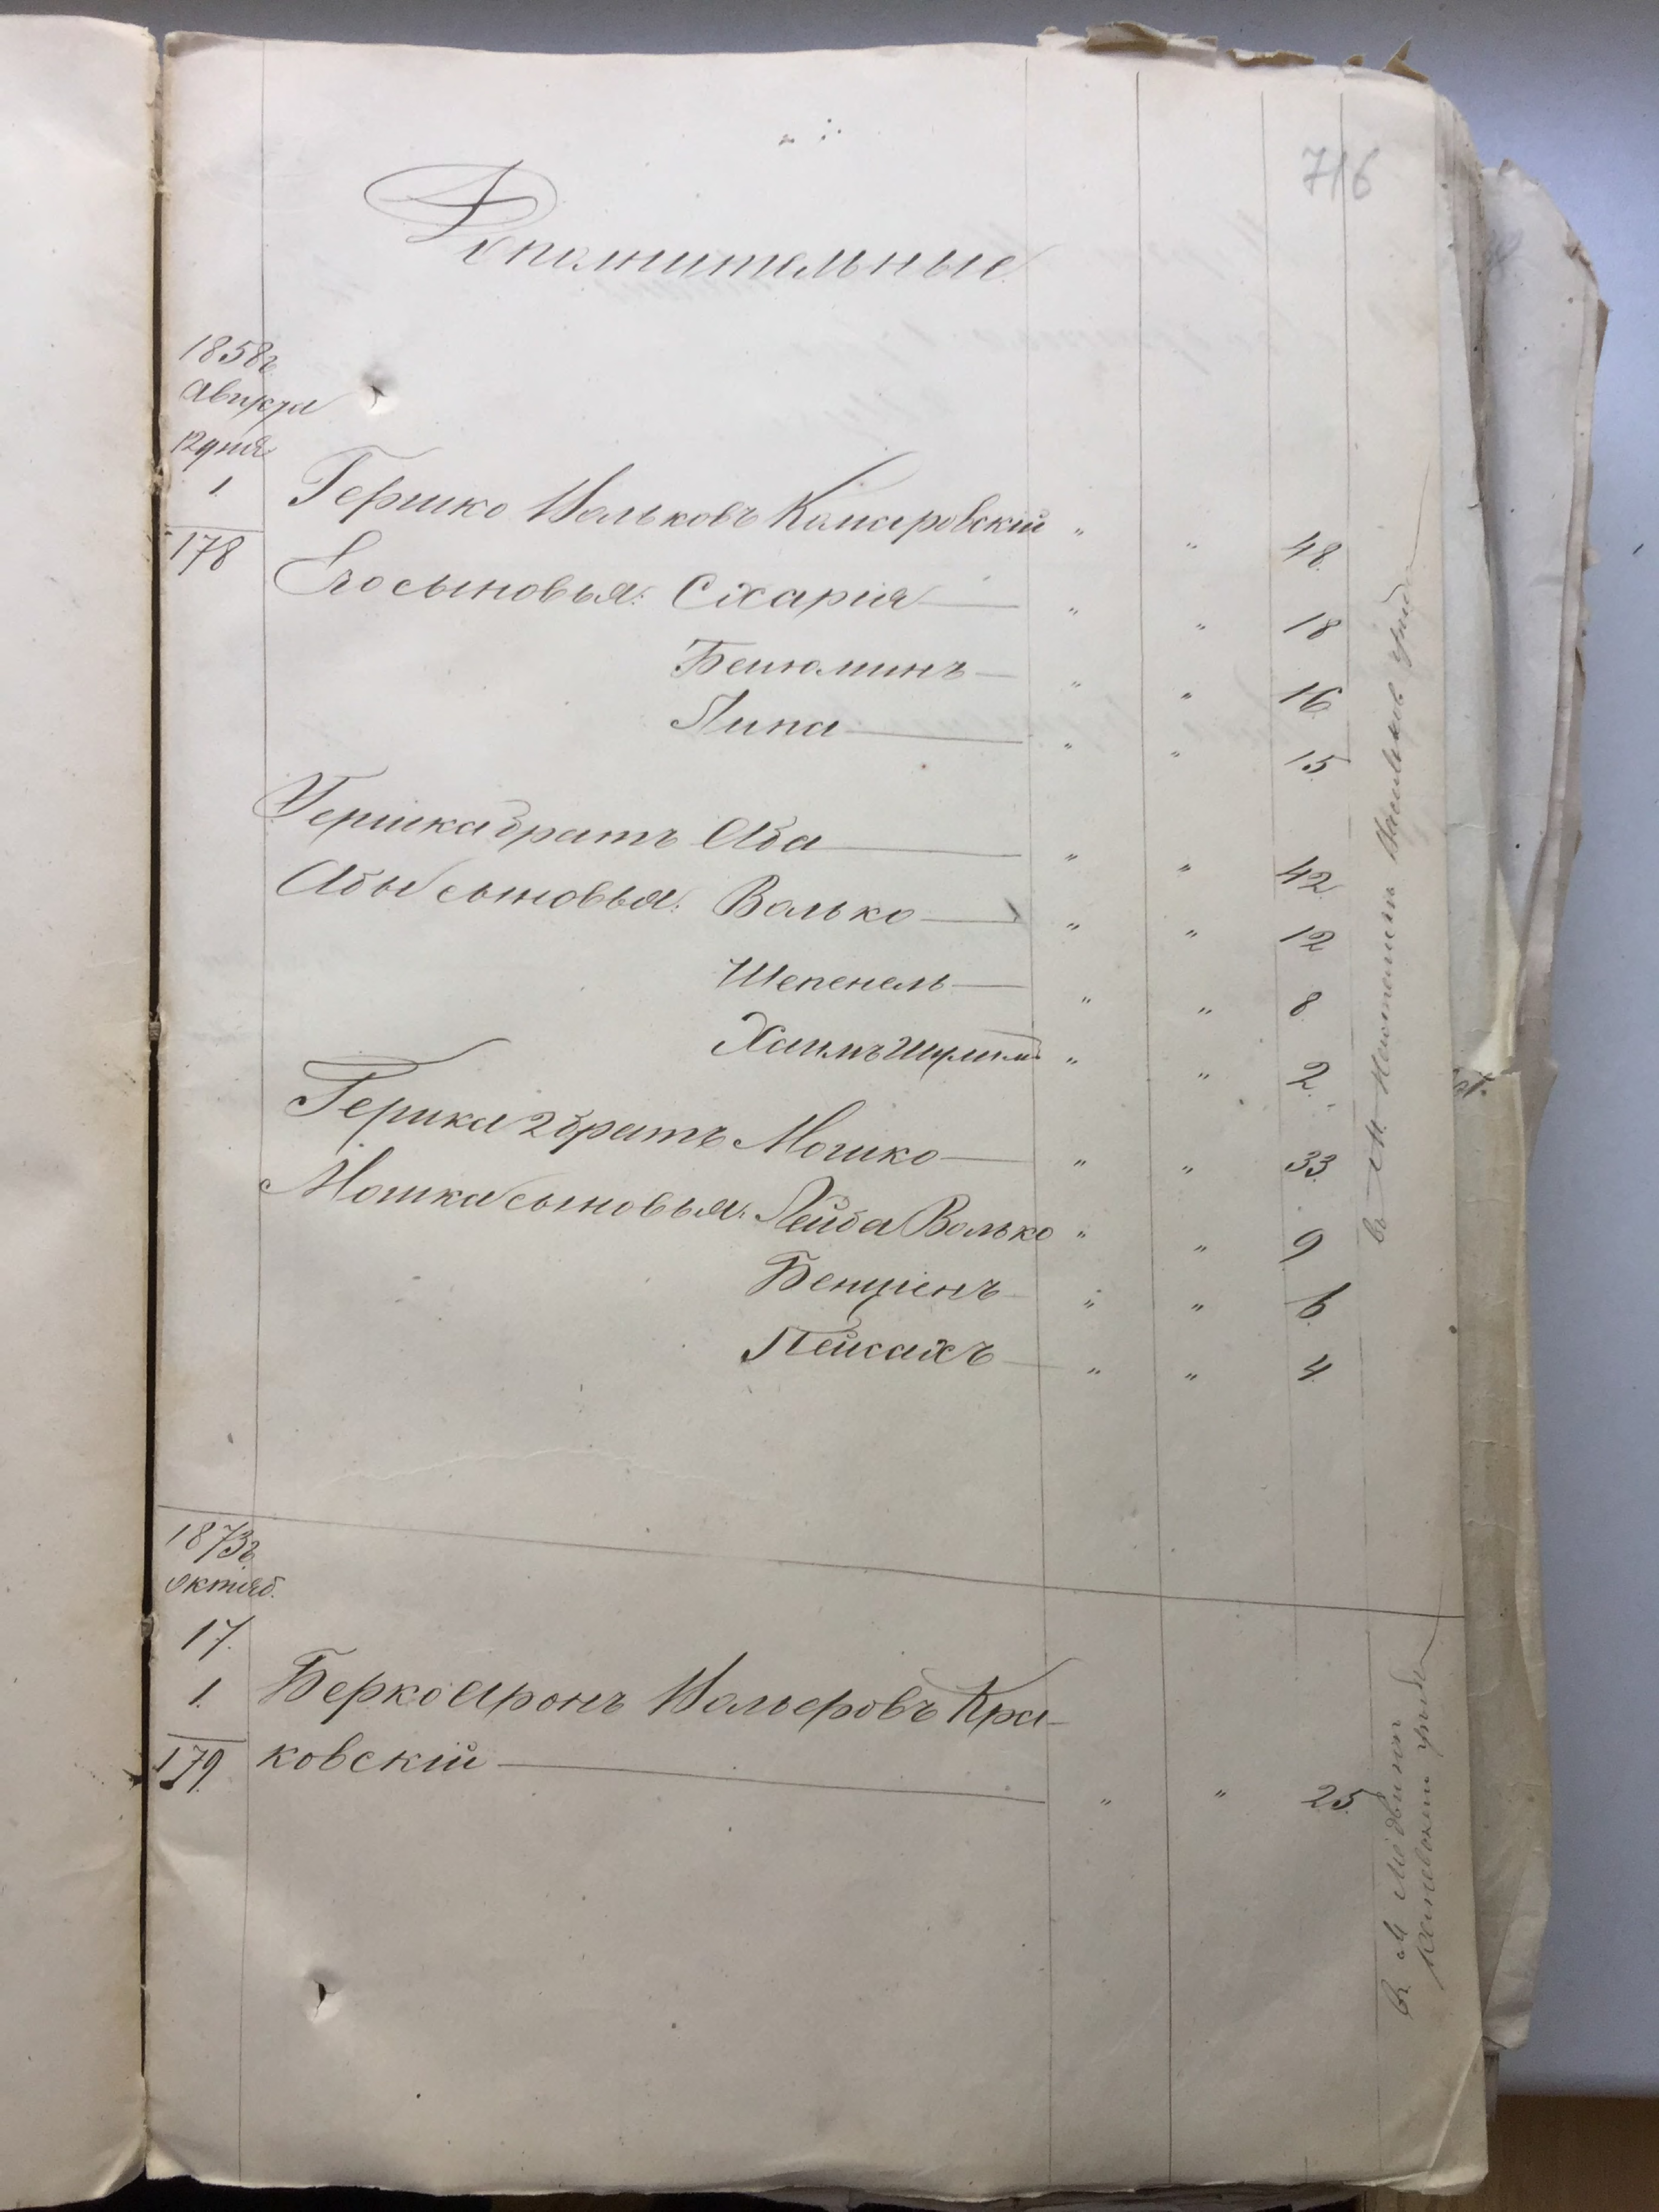 716
Дополнительные
1858г.
августа
12 дня
1.
178
Гершко Вольковъ Комаровскій " " 48.
Его сыновья: Сихария " " 18
Бенюминъ " " 16
Липа " " 15
Гершка братъ Аба " " 42
Абы сыновья: Волько " " 12
" " 8
Хаимъ " " 2.
Гершка 2 братъ Мошко " " 33.
Мошка сыновья: Лейба Волько " " 9
Бенціенъ " " 6
Пейсахъ " " 4
въ М.
1873г.
октяб.
17.
1.
179.
Берко Аронъ Вольеровъ Кра-
ковскій " " 25
въ М. Медвинъ